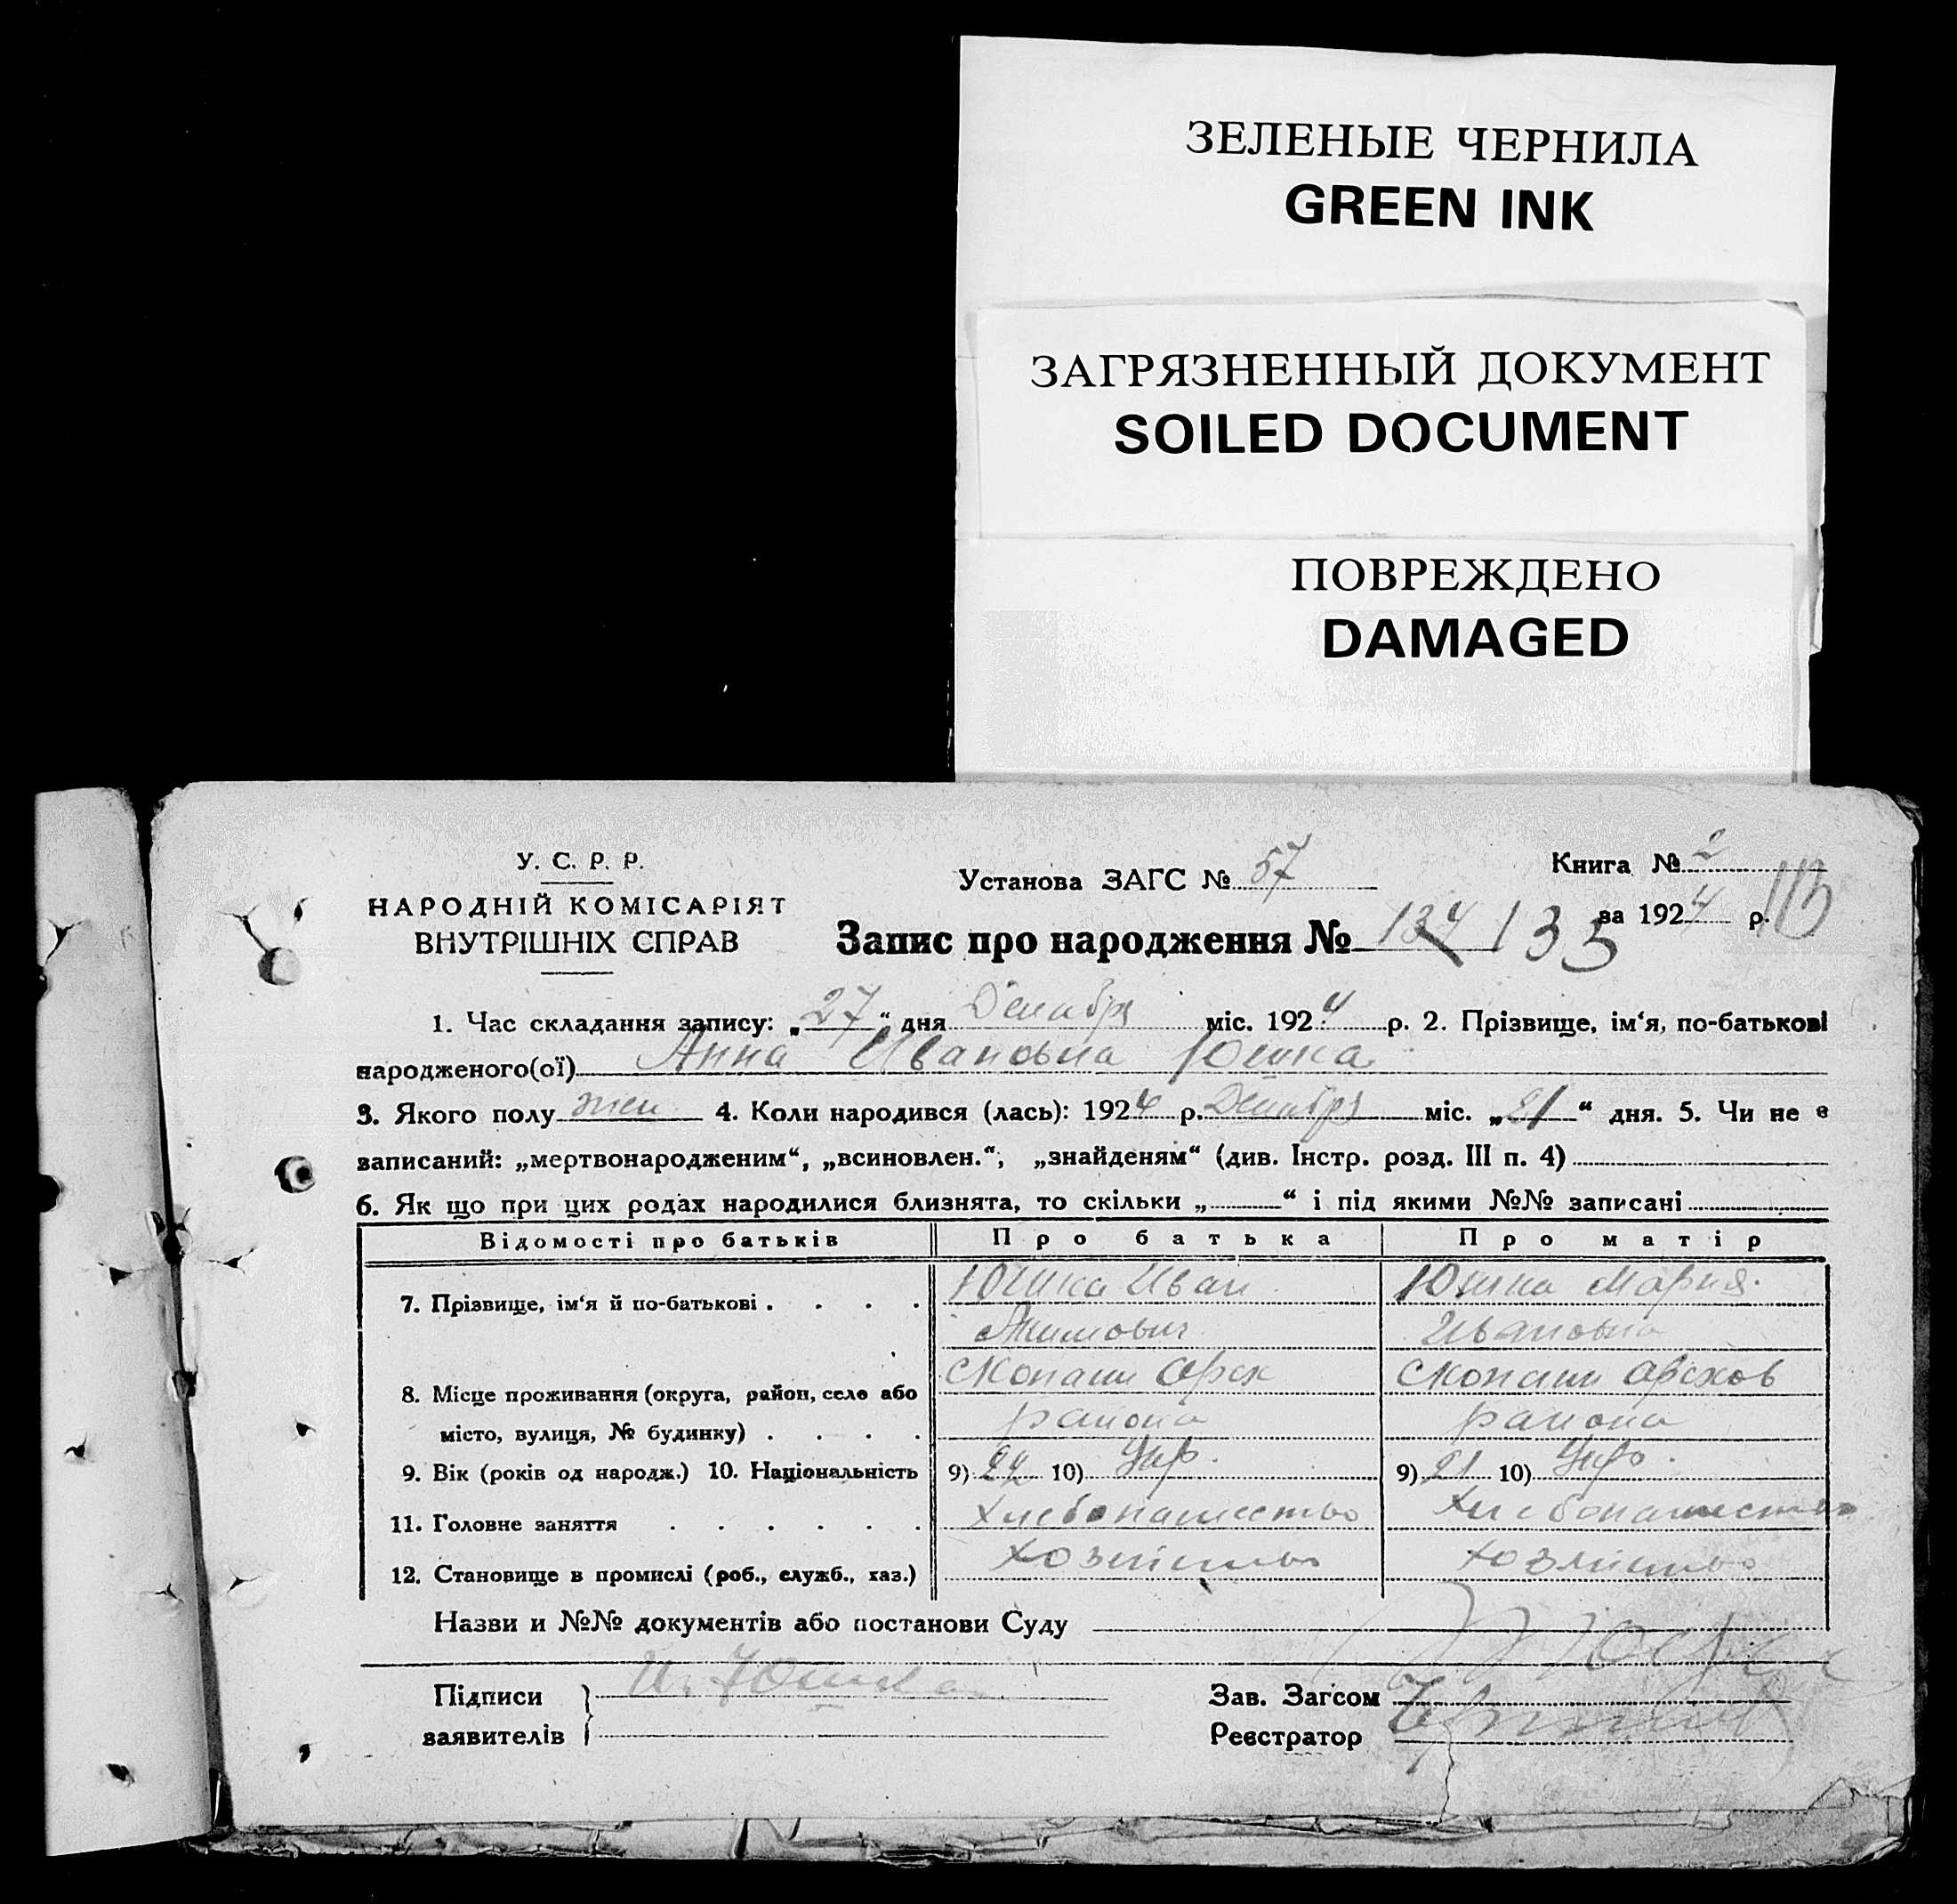 ЗЕЛЕНЫЕ ЧЕРНИЛА
GREEN INK
ЗАГРЯЗНЕННЫЙ ДОКУМЕНТ
SOILED DOCUMENT
ПОВРЕЖДЕНО
DAMAGED
У. С. Р. Р.
НАРОДНІЙ КОМІСАРІЯТ
ВНУТРІШНІХ СПРАВ
Установа ЗАГС № 57
Книга № 2
за 1924 р.
Запис про народження № 134 135
1. Час складання запису: „27“ дня Декабря міс. 1924 р. 2. Прізвище, ім‘я, по-батькові
народженого(ої) Анна Ивановна Юшка
3. Якого полу жен 4. Коли народився (лась): 1924 р. Декабря міс. „21“ дня. 5. Чи не є
записаний: „мертвонародженим“, „всиновлен.“, „знайденям“ (див. Інстр. розд. III п. 4)
6. Як що при цих родах народилися близнята, то скільки „ “ і під якими №№ записані
Відомості про батьків Про батька Про матір
7. Прізвище, ім‘я й по-батькові . . . . Юшка Иван Юшка Мария
Акимович Ивановна
8. Місце проживання (округа, район, село або Скопани Орех Скопани Орехов
місто, вулиця, № будинку) . . . . района района
9. Вік (років од народж.) 10. Національність 9) 24 10) Укр. 9) 21 10) Укр.
11. Головне заняття . . . . . . Хлебопашество Хлебопашество
12. Становище в промислі (роб., служб., хаз.) Хозяйство Хозяйство
Назви и №№ документів або постанови Суду
Підписи И. Юшка
заявителів
Зав. Загсом
Реєстратор